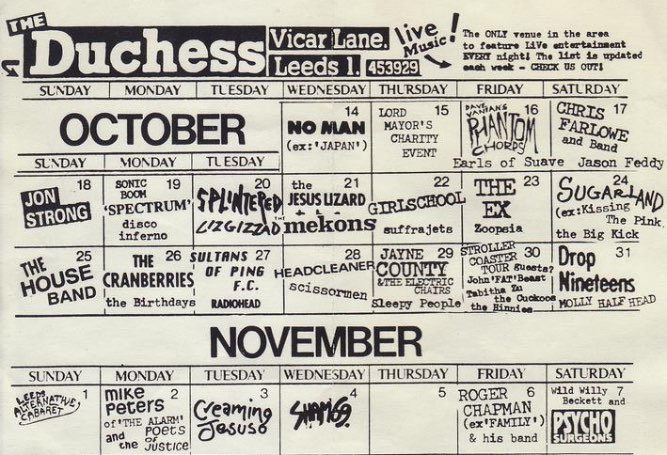 THE
Duchess
Vicar Lane.
Leeds 1. 453929
live Music!
The ONLY venue in the area
to feature LiVe entertainment
EVERY night! The list is updated
each week - CHECK US OUT!
SUNDAY MONDAY TUESDAY WEDNESDAY THURSDAY FRIDAY SATURDAY
OCTOBER
14
NO MAN
(ex:'JAPAN')
LORD 15
MAYOR'S
CHARITY
EVENT
DAVE VANIAN'S 16
PHANTOM
CHORDS
Earls of Suave
CHRIS 17
FARLOWE
and Band
Jason Feddy
SUNDAY MONDAY TUESDAY
18
JON
STRONG
SONIC 19
BOOM
'SPECTRUM'
disco
inferno
20
SPLINTERED
LIZGIZZAD
the 21
JESUS LIZARD
THE
mekons
22
GIRLSCHOOL
suffrajets
THE 23
EX
Zoopsia
24
SUGARLAND
(ex:Kissing
The Pink.
the Big Kick
25
THE
HOUSE
BAND
THE 26
CRANBERRIES
the Birthdays
SULTANS 27
OF PING
F.C.
RADIOHEAD
28
HEADCLEANER
scissormen
JAYNE 29
COUNTY
&THE ELECTRIC
CHAIRS
Sleepy People
STROLLER 30
COASTER
TOUR guests?
John'FAT'Beast
Tabitha Zu
the Cuckoos
the Hinnies
Drop 31
Nineteens
MOLLY HALF HEAD
NOVEMBER
SUNDAY MONDAY TUESDAY WEDNESDAY THURSDAY FRIDAY SATURDAY
1
LEEDS
ALTERNATIVE
CABARET
mike 2
Peters
of 'THE ALARM'
and the Poets of Justice
3
Creaming
Jesus
4
SHAM69.
5
ROGER 6
CHAPMAN
(ex'FAMILY')
& his band
Wild Willy 7
Beckett and
PSYCHO
SURGEONS